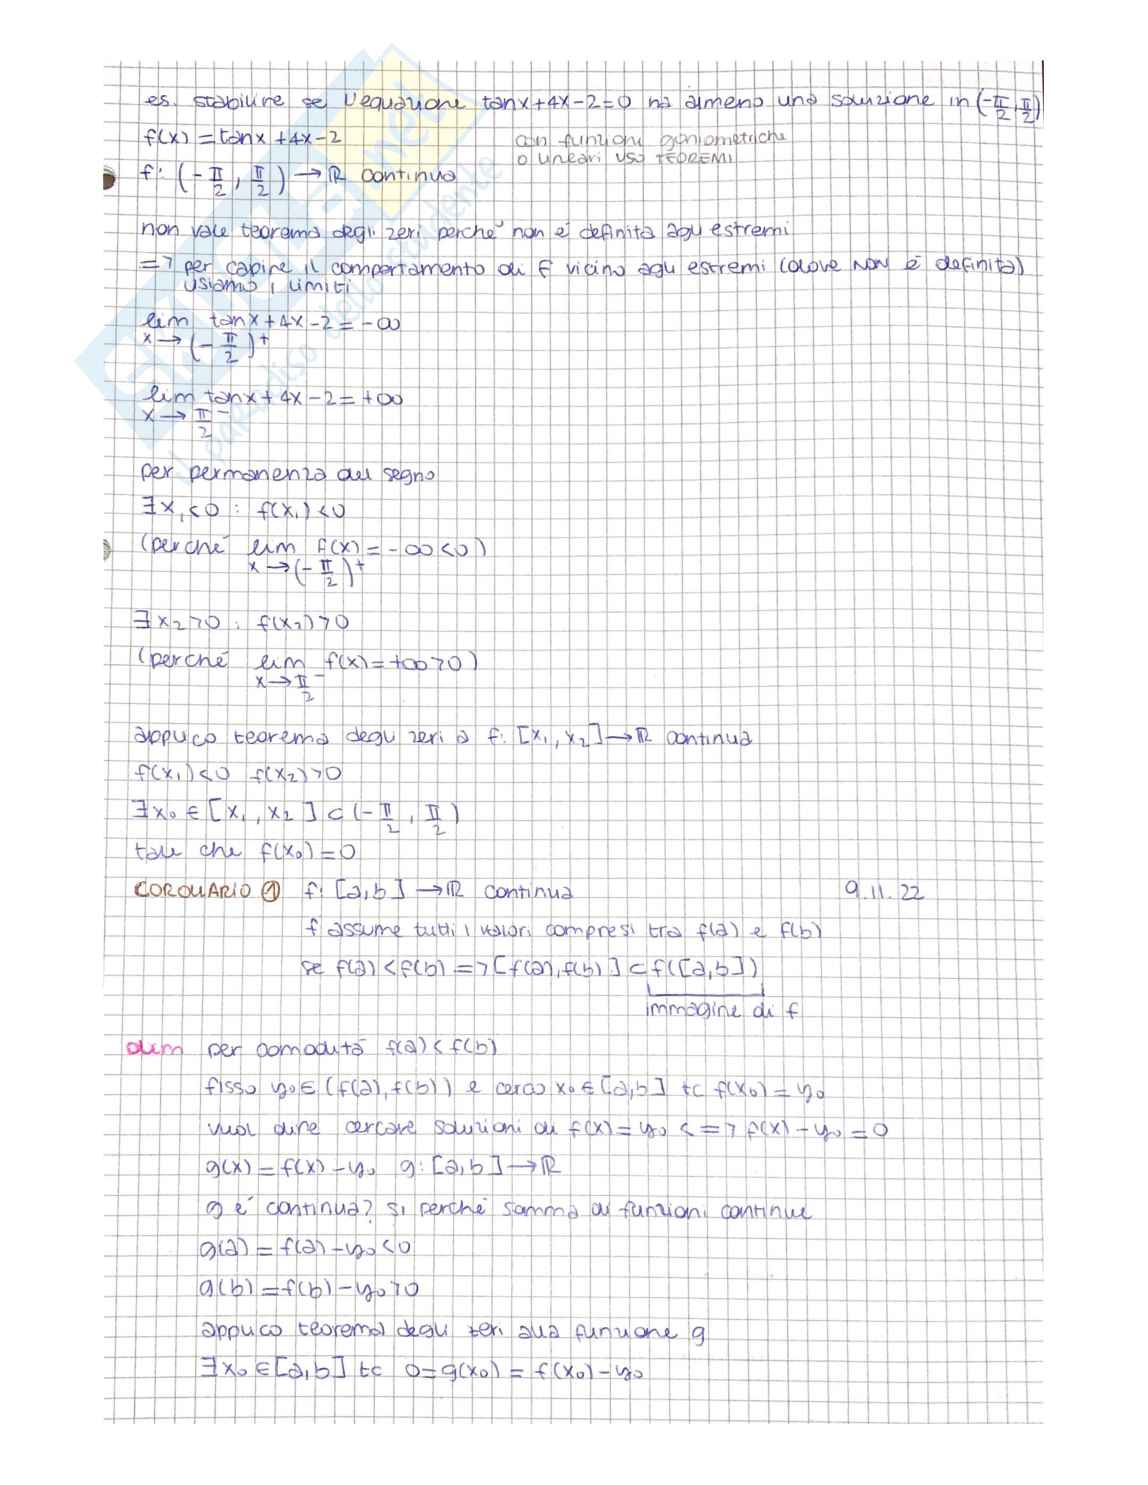 es. stabilire se l'equazione tanx+4x-2=0 ha almeno una soluzione in (-π/2, π/2)
f(x)=tanx+4x-2
con funzioni goniometriche
o lineari uso TEOREMI
f: (-π/2, π/2) → ℝ continua
non vale teorema degli zeri perché non è definita agli estremi
=> per capire il comportamento di f vicino agli estremi (dove NON è definita)
usiamo i limiti
lim tanx+4x-2=-∞
x→(-π/2)⁺
lim tanx+4x-2=+∞
x→π/2⁻
per permanenza del segno
∃x₁<0 : f(x₁)<0
(perché lim f(x)=-∞<0)
x→(-π/2)⁺
∃x₂>0 : f(x₂)>0
(perché lim f(x)=+∞>0)
x→π/2⁻
applico teorema degli zeri a f: [x₁,x₂]→ℝ continua
f(x₁)<0 f(x₂)>0
∃x₀∈[x₁,x₂]⊂(-π/2, π/2)
tale che f(x₀)=0
COROLLARIO ① f: [a,b] →ℝ continua 9.11.22
f assume tutti i valori compresi tra f(a) e f(b)
se f(a)<f(b) => [f(a),f(b)]⊂f([a,b])
immagine di f
dim per comodità f(a)<f(b)
fisso y₀∈(f(a),f(b)) e cerco x₀∈[a,b] tc f(x₀)=y₀
vuol dire cercare soluzioni di f(x)=y₀ <=> f(x)-y₀=0
g(x)=f(x)-y₀ g: [a,b]→ℝ
g è continua? sì perché somma di funzioni continue
g(a)=f(a)-y₀<0
g(b)=f(b)-y₀>0
applico teorema degli zeri alla funzione g
∃x₀∈[a,b] tc 0=g(x₀)=f(x₀)-y₀